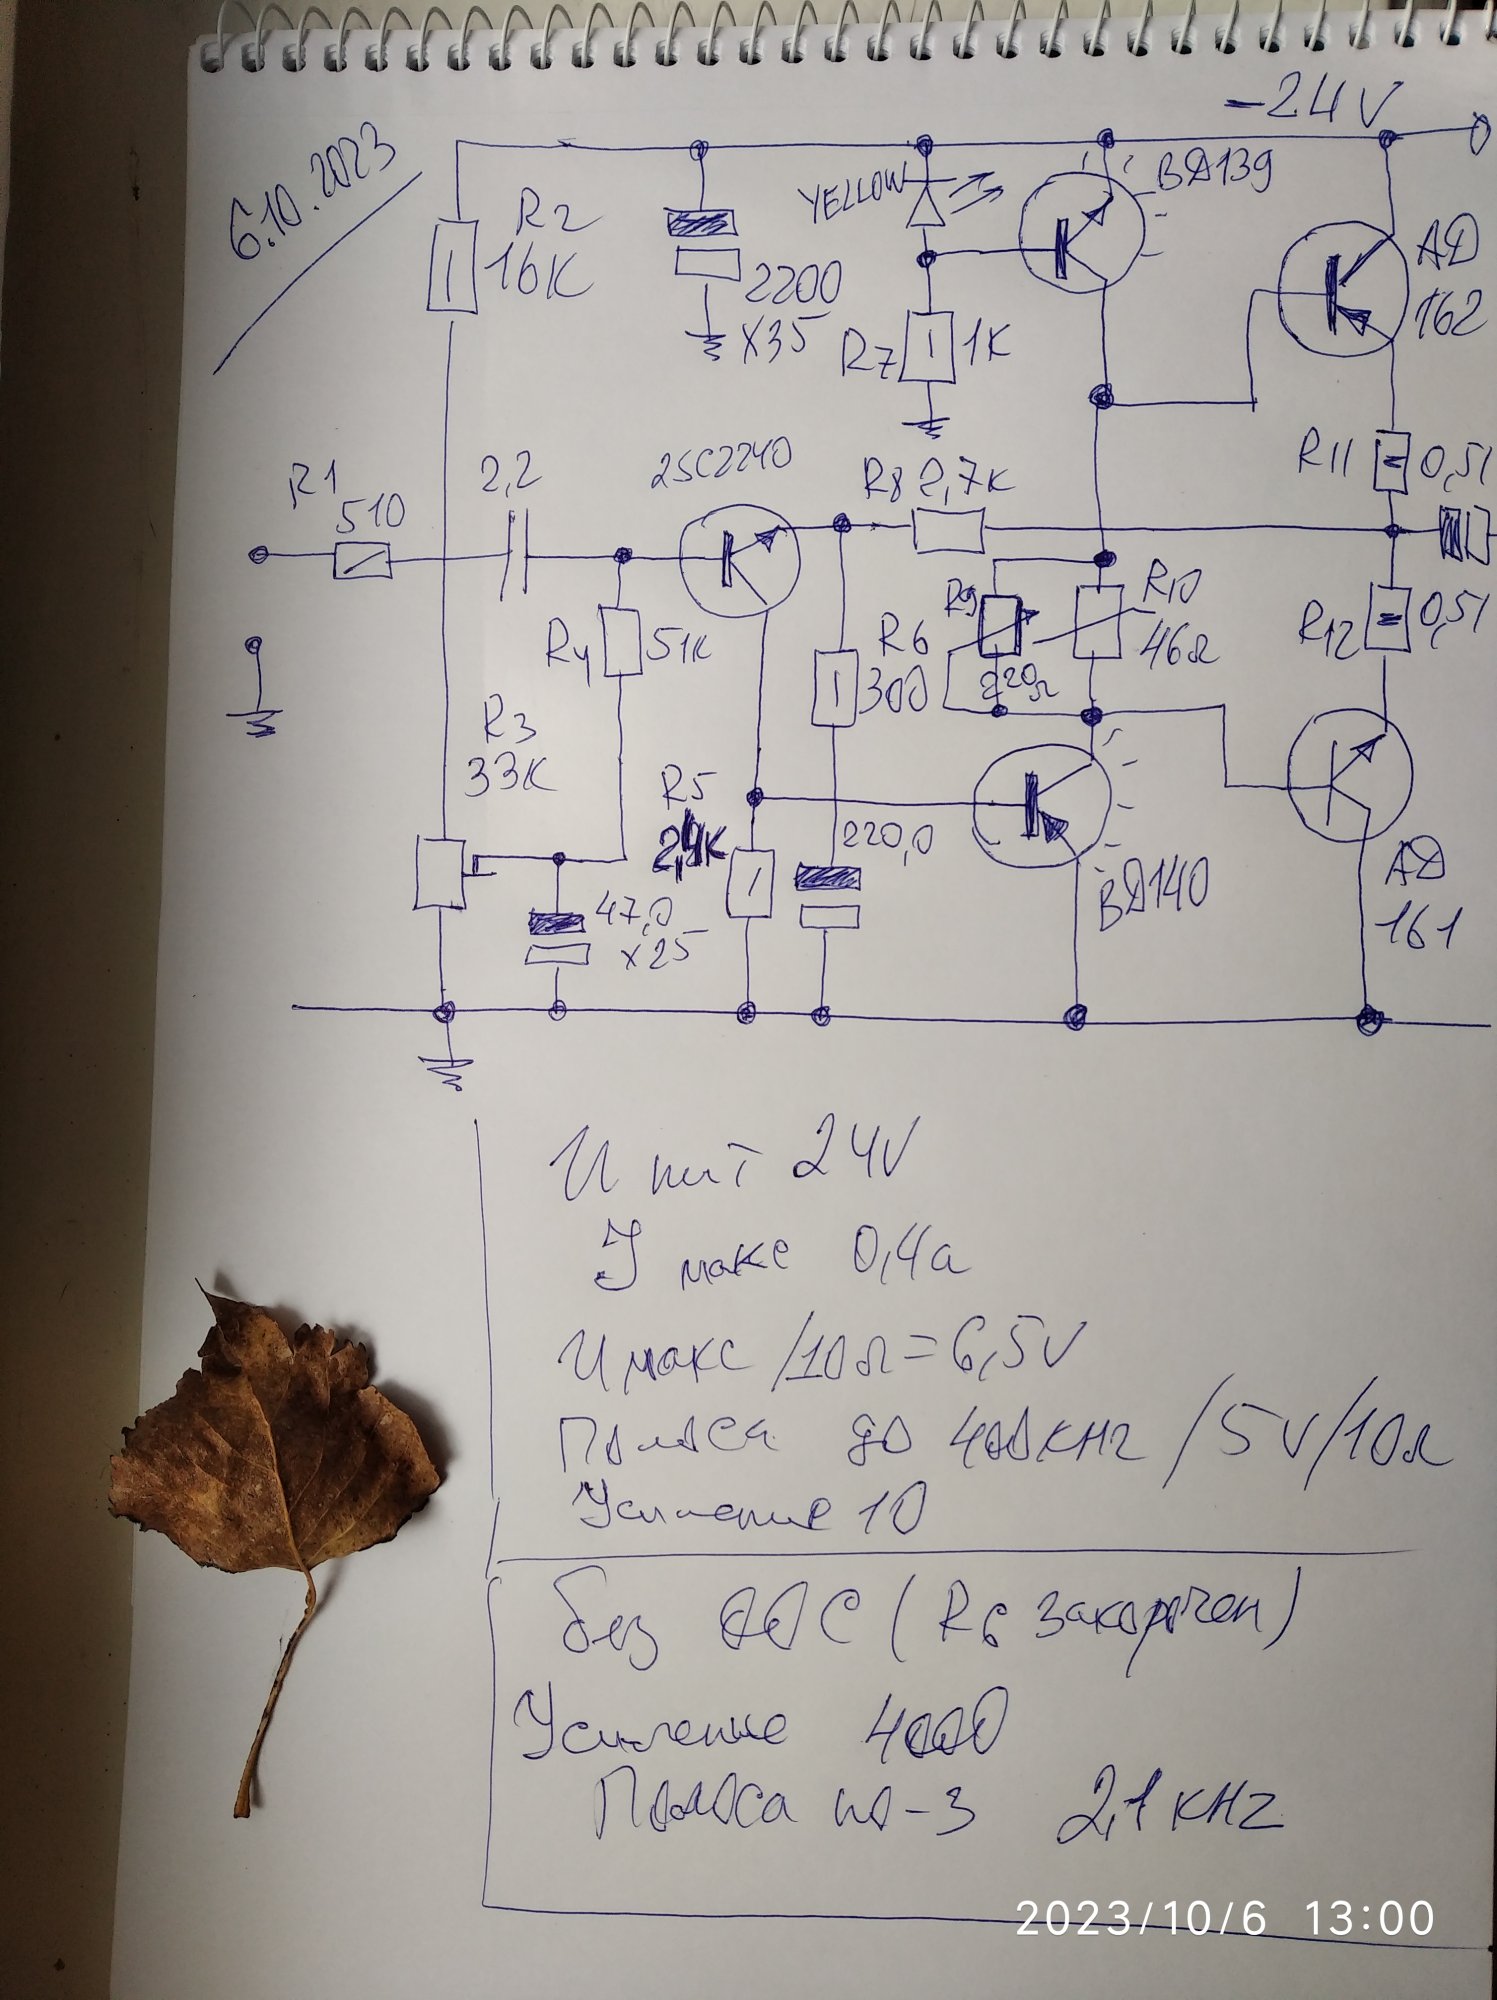 6.10.2023
-24V
R2
16K
2200
X35
YELLOW
BD139
R7 1K
AD
162
R11 0,51
R1
510
2,2
2SC2240
R8 2,7K
R4 51K
R6
300
R9
220Ω
R10
46Ω
R12 0,51
R3
33K
R5
2,4K
220,0
47,0
X25
BD140
AD
161
U пит 24V
J макс 0,4а
U макс /10Ω=6,5V
Полоса до 400KHz /5V/10Ω
Усиление 10
без ООС (R6 закорочен)
Усиление 4000
Полоса по -3 2,1KHz
2023/10/6 13:00